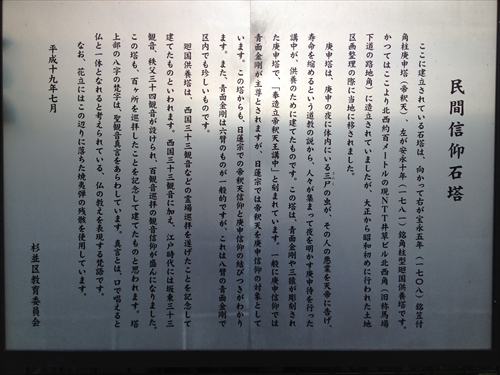 民間信仰石塔
ここに建立されている石塔は、向かって右が宝永五年（一七〇八）銘笠付
角柱庚申塔（帝釈天）、左が安永十年（一七八一）銘角柱型廻国供養塔です。
かつてはここより北西約百メートルの現NTT井草ビル北西角（旧称馬場
下道の路地角）に造立されていましたが、大正から昭和初めに行われた土地
区画整理の際に当地に移されました。
庚申塔は、庚申の夜に体内にいる三尸の虫が、その人の悪業を天帝に告げ、
寿命を縮めるという道教の説から、人々が集まって夜を明かす庚申待を行った
講中が、供養のために建てたものです。この塔は、青面金剛や三猿が彫刻され
た庚申塔で、「奉造立帝釈天王講中」と刻まれています。一般に庚申信仰では
青面金剛が主尊とされますが、日蓮宗では帝釈天を庚申信仰の対象として
います。この塔からも、日蓮宗での帝釈天信仰と庚申信仰の結びつきがわかり
ます。また、青面金剛は六臂のものが一般的ですが、これは八臂の青面金剛で
区内でも珍しいものです。
廻国供養塔は、西国三十三観音などの霊場巡拝を遂げたことを記念して
建てたものといわれます。西国三十三観音に加え、江戸時代には坂東三十三
観音、秩父三十四観音が設けられ、百観音巡拝の観音信仰が盛んになりました。
この塔も、百ヶ所を巡拝したことを記念して建てたものと思われます。塔
上部の八字の梵字は、聖観音真言をあらわしています。真言とは、口で唱えると
仏と一体となれると考えられている、仏の教えを表現する呪語です。
なお、花立にはこの辺りに落ちた焼夷弾の残骸を使用しています。
平成十九年七月
杉並区教育委員会